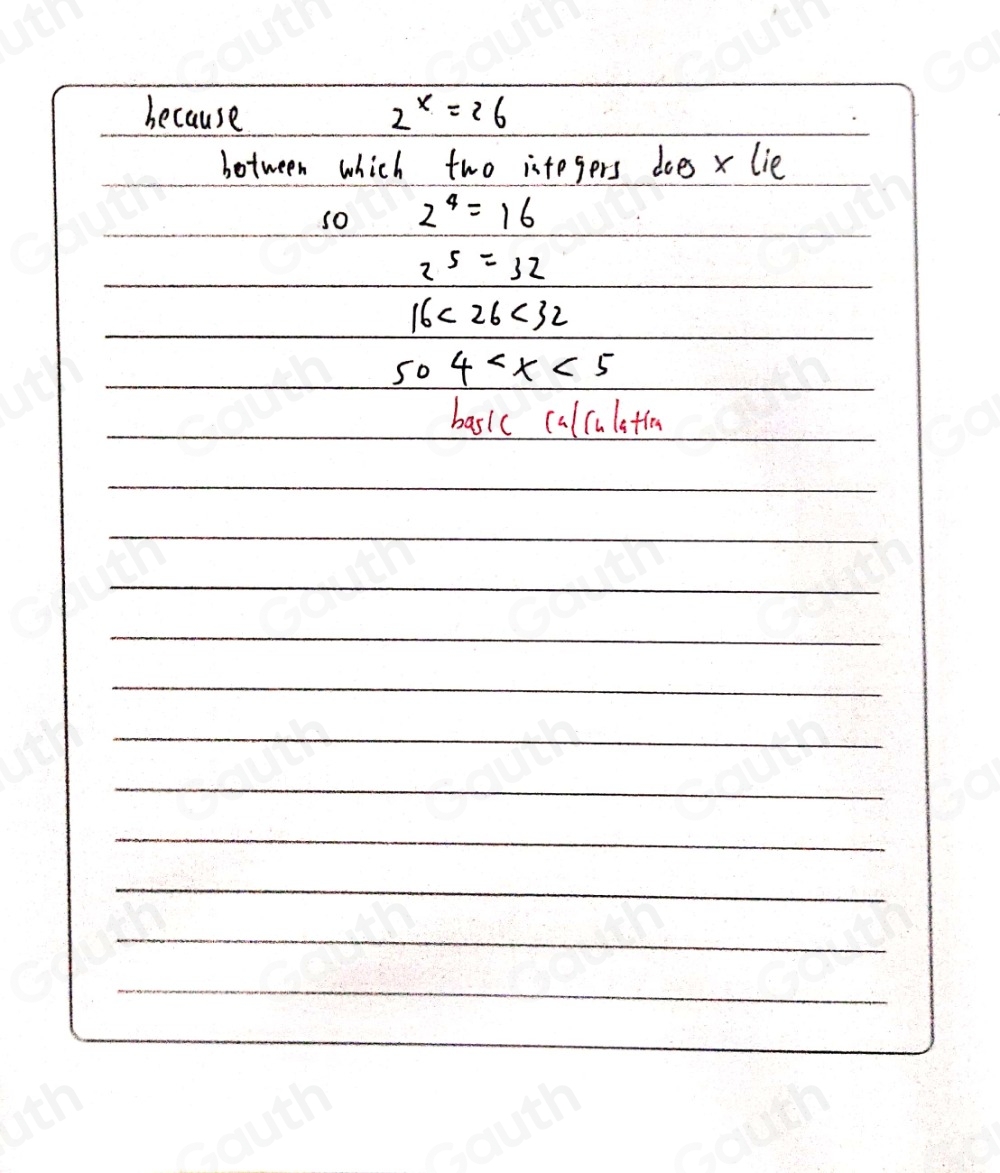 because 2^x = 26
between which two integers does x lie
so 2^4 = 16
2^5 = 32
16 < 26 < 32
so 4 < x < 5
basic calculation
Gauth